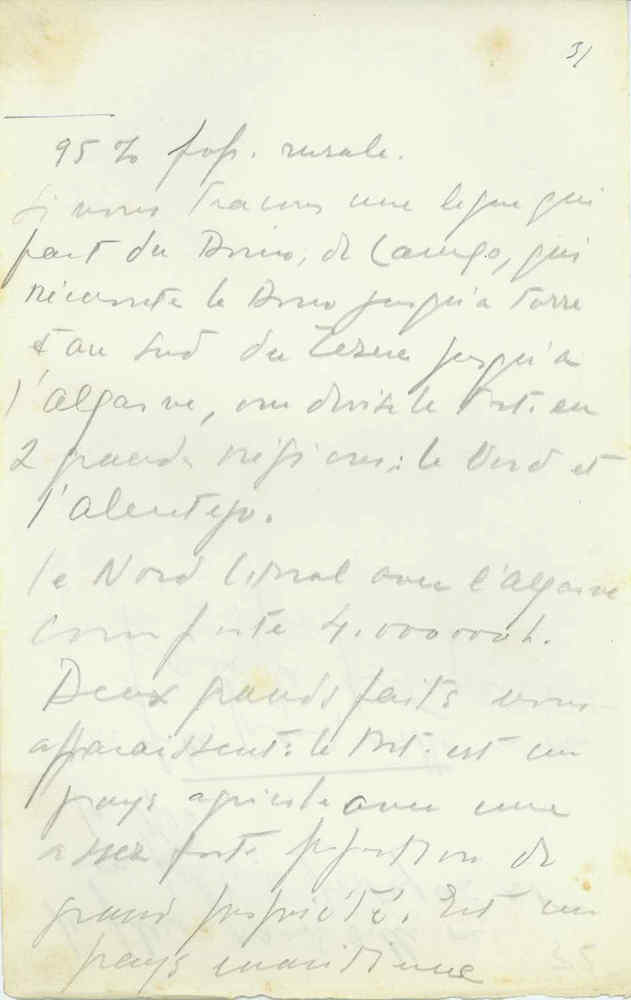 31
95 % pop. rurale.
Si nous traçons une ligne qui
part du Douro, de Lamego, qui
remonte le Douro jusqu'à Torre
et au Sud du Zezere jusqu'à
l'algarve, on divise le Port. en
2 grandes régions: le Nord et
l'alentejo.
le Nord litoral avec l'Algarve
comporte 4.000000 h.
Deux grands faits nous
apparaissent: le Port. est un
pays agricole avec une
assez forte proportion de
grand propriété. Est un
pays maritime